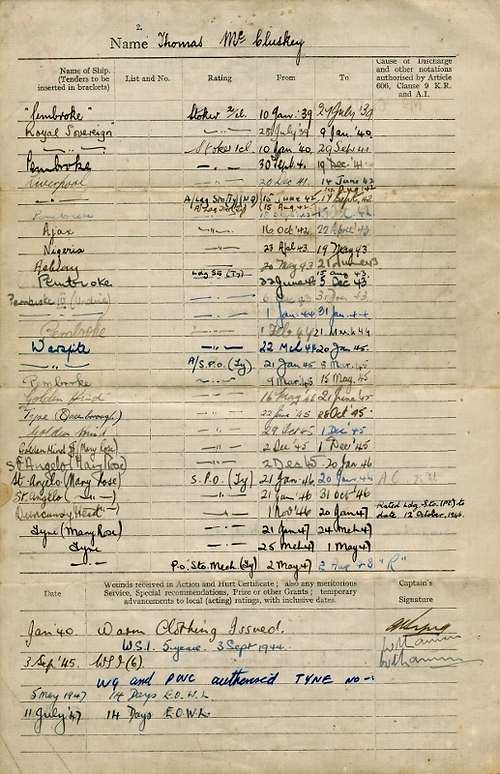 2.
Name Thomas Mc Cluskey
Name of Ship. (Tenders to be inserted in brackets) List and No. Rating From To Cause of Discharge and other notations authorised by Article 606, Clause 9 K.R. and A.I.
"Pembroke" Stoker 2/cl. 10 Jan. '39 27 July '39
Royal Sovereign" 28 July '39 9 Jan. '40
Stoker 1cl. 10 Jan '40 29 Sept 41
Pembroke 30 Sept. 41 19 Dec '41
Liverpool 20 Dec 41 14 June 42
A/Ldg Sto (Ty) 15 June 42
Pembroke
Ajax 16 Oct '42 22 April 43
Nigeria 23 Apl 43 19 May 43
Ashway 20 May 43
Pembroke Ldg Sto (Ty) 5 Dec 43
Pembroke III
1 Jan. 44 31 Jan. 44
Pembroke 1 Feb 44 21 March 44
Warspite 22 Mch 44 20 Jan 45
A/S.P.O. (Ty) 21 Jan 45 8 Mar. 45
Pembroke 9 Mar. 45 15 May. 45
Golden Hind 16 May 45 21 June 45
Tyne (Queenborough) 22 June '45 28 Oct 45
Golden Hind 29 Oct 45 1 Dec '45
Golden Hind (Mary Rose) 2 Dec '45 1 Dec '45
St Angelo (Mary Rose) 2 Dec 45 20 Jan 46
St. Angelo (Mary Rose) S.P.O. (Ty) 21 Jan 46 20 Jan 46
St. Angelo ( — " — ) 21 Jan '46 31 Oct '46
Duncansby Head 1 Nov '46 20 Jan 47 Rated Ldg. Sto. (PE) to date 12 October, 1946.
Tyne (Mary Rose) 21 Jan 47 24 Mch 47
Tyne 25 Mch 47 1 May 47
P.o. Sto. Mech (Ty) 2 May 47 "R"
Date Wounds received in Action and Hurt Certificate; also any meritorious Service, Special recommendations, Prize or other Grants; temporary advancements to local (acting) ratings, with inclusive dates. Captain's Signature
Jan '40 Warm Clothing Issued.
W.S.I. 5 years. 3 Sept 1944.
3 Sep '45 W.S.I (6).
WG and PWC authorised TYNE NO-:
5 May 1947 14 Days E.O.W.L.
11 July '47 14 Days E.O.W.L.